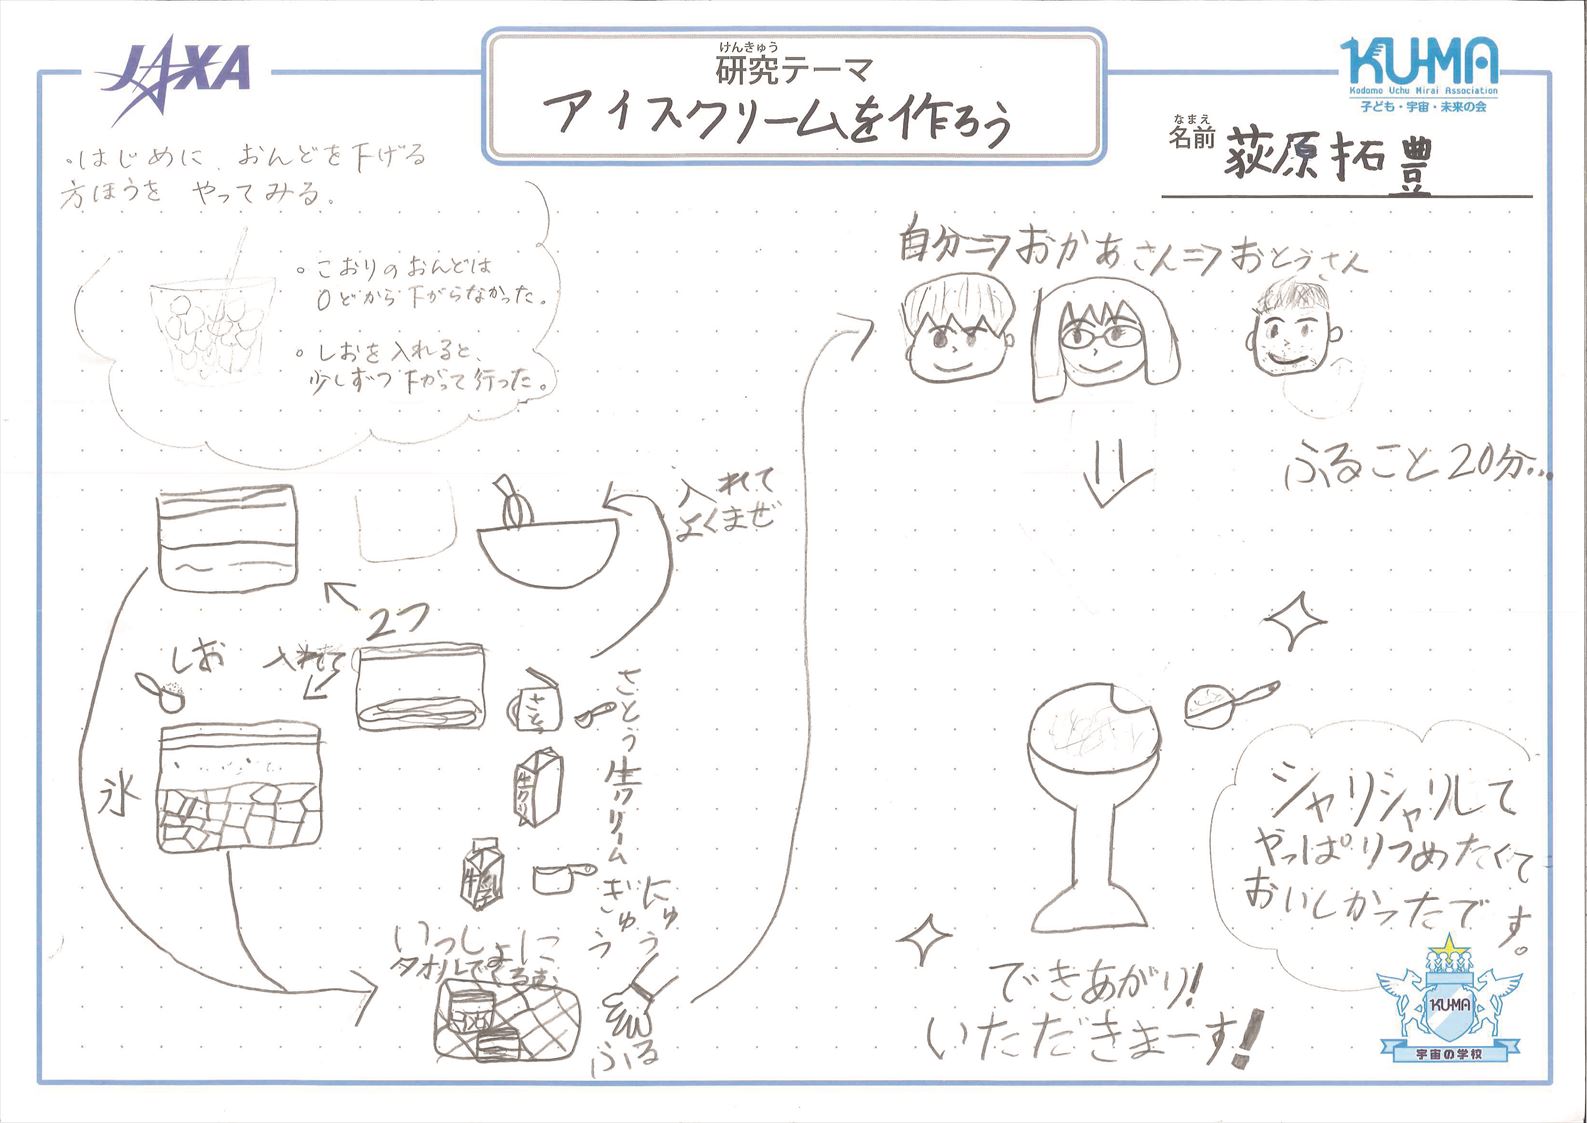 JAXA
けんきゅう
研究テーマ
アイスクリームを作ろう
KU-MA
Kodomo Uchu Mirai Association
子ども・宇宙・未来の会
なまえ
名前
荻原拓豊
・はじめに、おんどを下げる
方ほうを やってみる。
・こおりのおんどは
0どから下がらなかった。
・しおを入れると、
少しずつ下がって行った。
入れて
よくまぜ
2つ
しお
入れて
氷
さとう
さとう
生クリーム
生クリ
牛乳
ぎゅう
にゅう
いっしょに
タオルでくるむ
ふる
自分⇒おかあさん⇒おとうさん
ふること20分…
シャリシャリして
やっぱりつめたくて
おいしかったです。
できあがり!
いただきまーす!
KU-MA
宇宙の学校